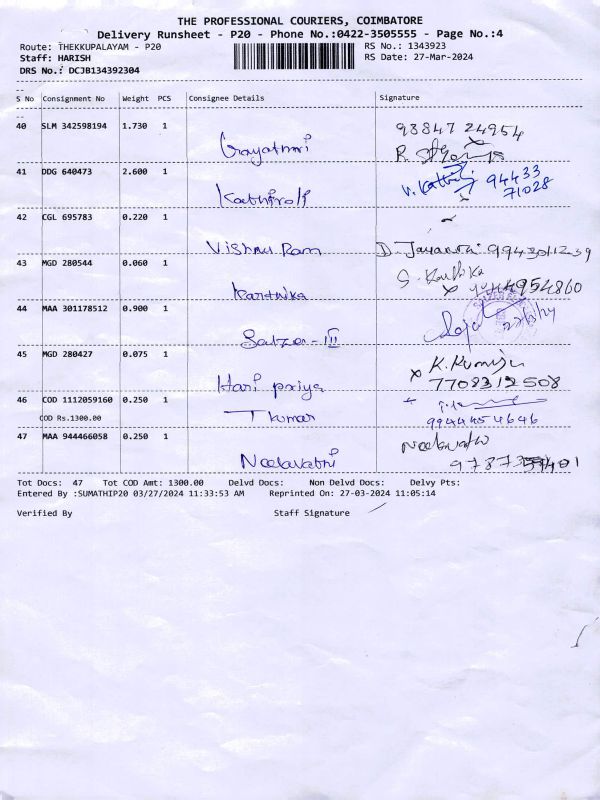 THE PROFESSIONAL COURIERS, COIMBATORE
Delivery Runsheet - P20 - Phone No.:0422-3505555 - Page No.:4
Route: THEKKUPALAYAM - P20 RS No.: 1343923
Staff: HARISH RS Date: 27-Mar-2024
DRS No.: DCJB134392304
S No Consignment No Weight PCS Consignee Details Signature
40 SLM 342598194 1.730 1 Gayathri 98847 24954
R.
41 DDG 640473 2.600 1 Kathiroli V. 94433
71028
42 CGL 695783 0.220 1 Vishnu Ram D. Jayanthi
43 MGD 280544 0.060 1 Karthika S. Karthika
44 MAA 301178512 0.900 1 Salzer-III
45 MGD 280427 0.075 1 Hari priya K.
7708312508
46 COD 1112059160 0.250 1 T kumar
COD Rs.1300.00 9944454646
47 MAA 944466058 0.250 1 Neelavathi
Tot Docs: 47 Tot COD Amt: 1300.00 Delvd Docs: Non Delvd Docs: Delvy Pts:
Entered By :SUMATHIP20 03/27/2024 11:33:53 AM Reprinted On: 27-03-2024 11:05:14
Verified By Staff Signature